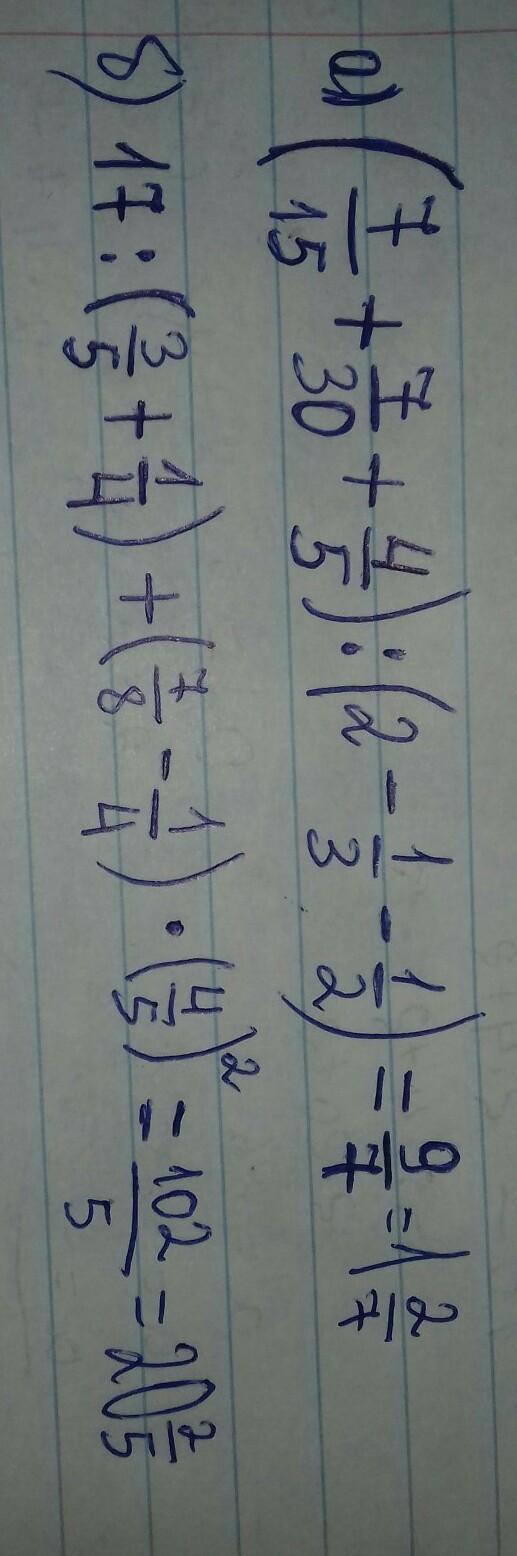 а) (7/15 + 7/30 + 4/5) : (2 - 1/3 - 1/2) = 9/7 = 1 2/7
б) 17 : (3/5 + 1/4) + (7/8 - 1/4) · (4/5)² = 102/5 = 20 2/5